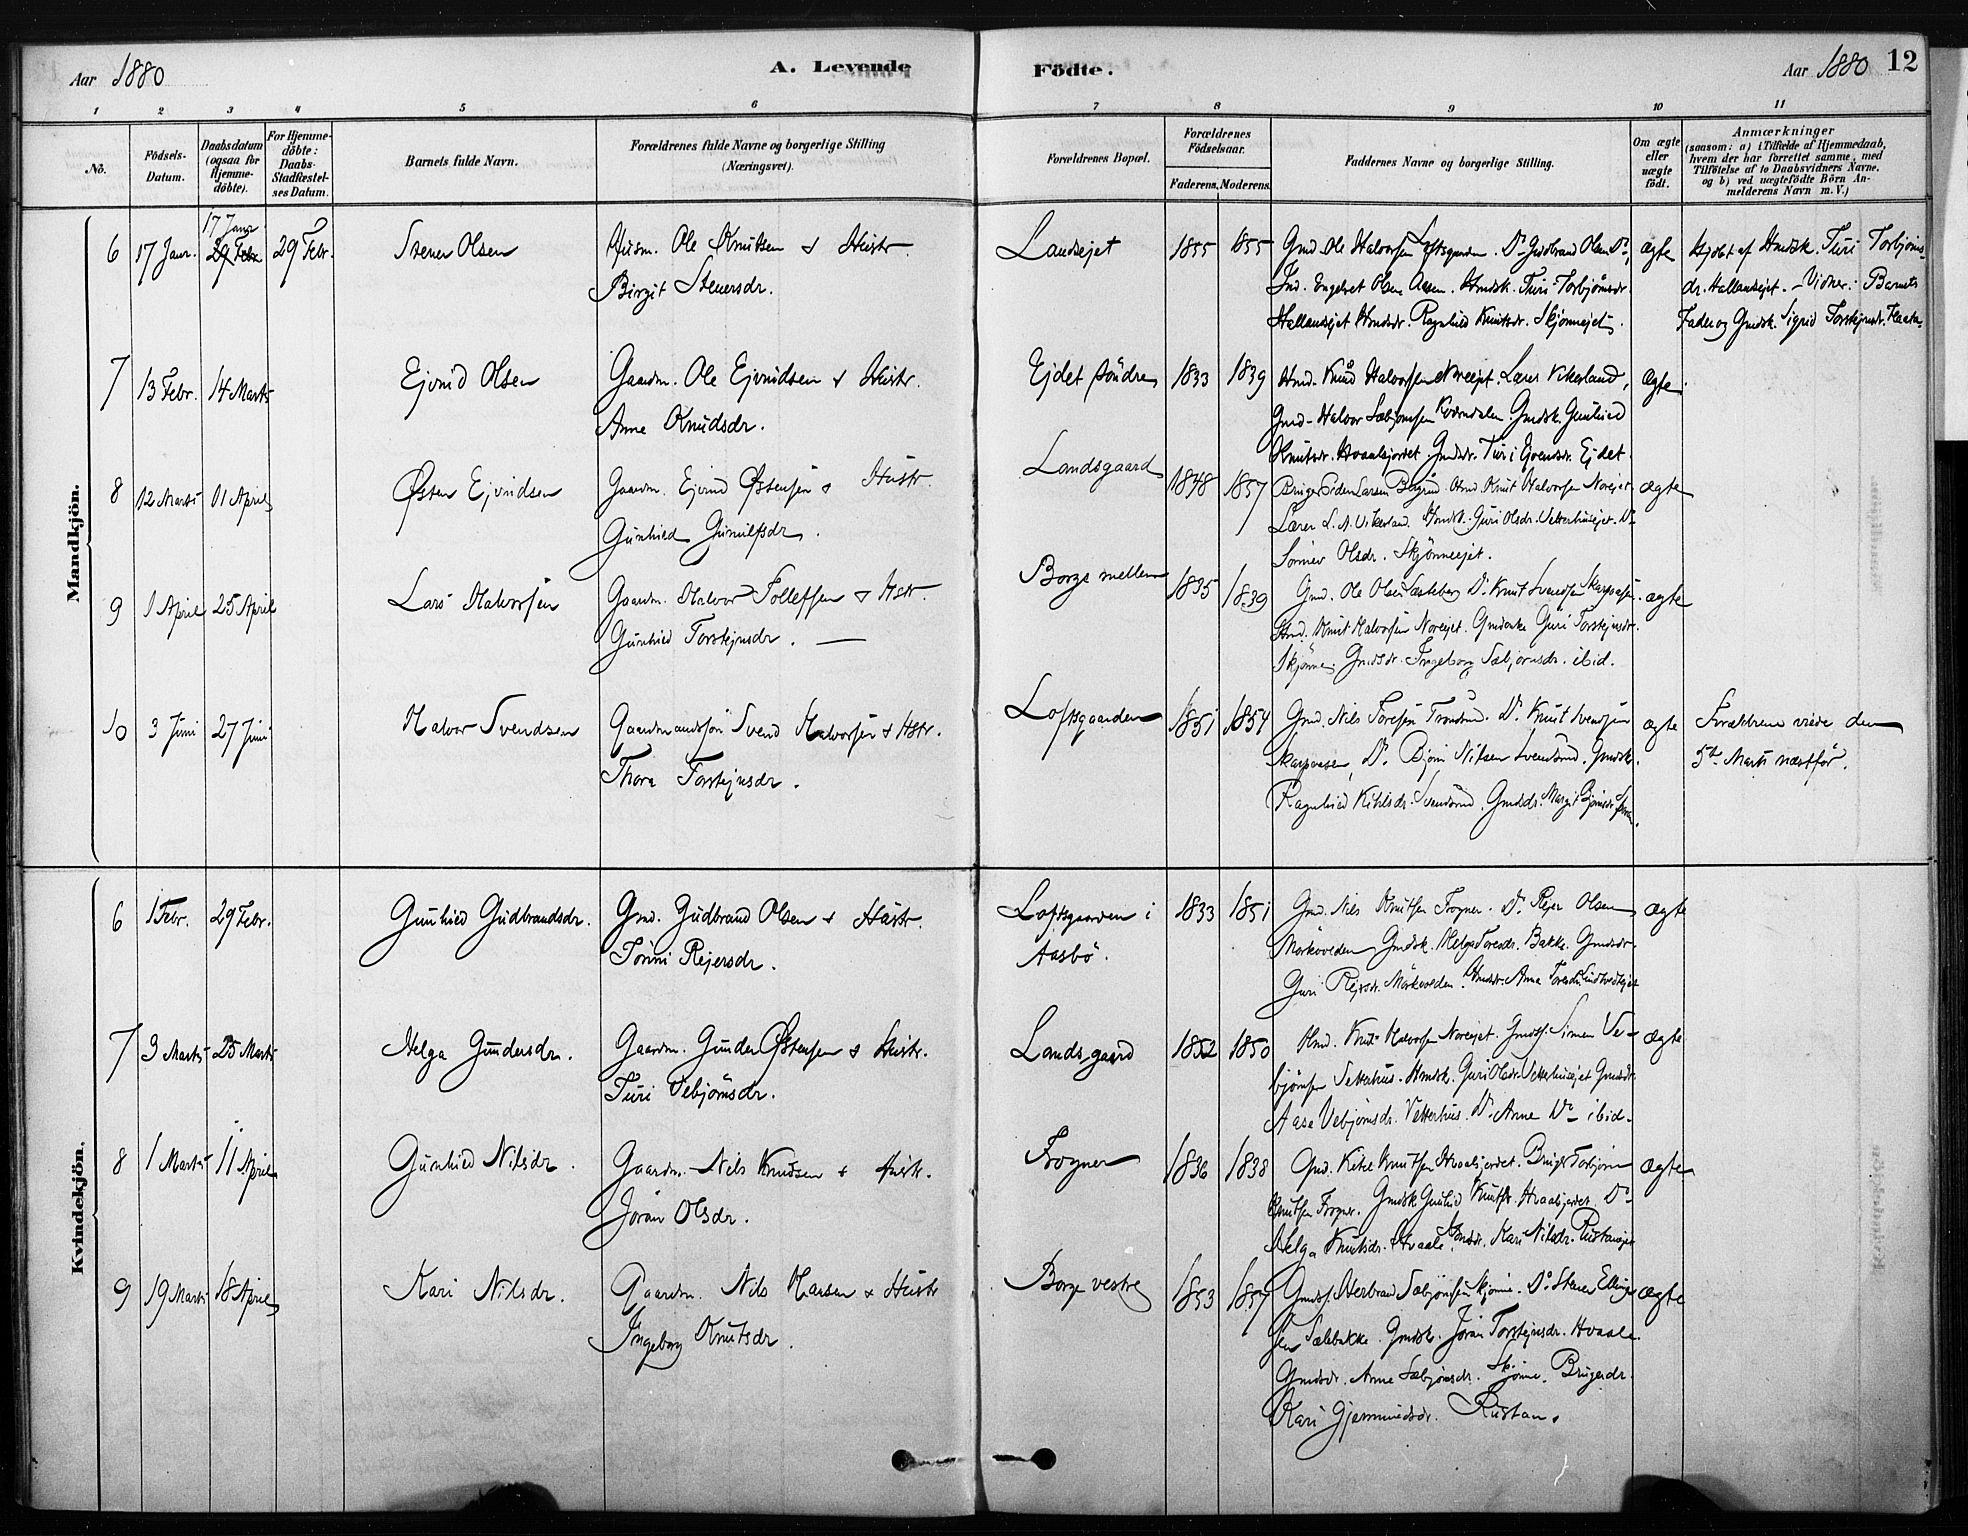 Aar 1880 A. Levende Födte. Aar 1880 12
1 2 3 4 5 6 7 8 9 10 11
No. Födsels-Datum. Daabsdatum (ogsaa for Hjemme-döbte). For Hjemme-döbte: Daabs-Stadfæstel-ses Datum. Barnets fulde Navn. Forældrenes fulde Navne og borgerlige Stilling (Næringsvei). Forældrenes Bopæl. Forældrenes Födselsaar. Faderens. Moderens. Faddernes Navne og borgerlige Stilling. Om ægte eller uægte födt. Anmærkninger (saasom: a) i Tilfælde af Hjemmedaab, hvem der har forrettet samme, med Tilföielse af to Daabsvidners Navne, og b) ved uægtefödte Börn An-melderens Navn m. V.)
Mandkjön.
17 Janr.
6 17 Janr. 29 Febr. 29 Febr. Stener Olsen Husm. Ole Knutsen & Hustr. Landsejet 1855 1855 Gmd. Ole Halvorsen Loftsgarden. Do Gudbrand Olsen Do, ægte Hjdbt af Hmdsk. Turi Torbjörns-
Birgit Stenersdr. Ind. Engebret Olsen Aasen. Hmdsk. Turi Torbjörnsdr. dr. Hallandsejet. - Vidner: Barnets
Hallandsejet Hmdsdr. Ragnhild Knutsdr. Skjönnejet. Fader og Gmdsk. Sigrid Torstejnsdr.
7 13 Febr. 14 Marts Ejvind Olsen Gaardm. Ole Ejvindsen & Hustr. Ejdet söndre 1833 1839 Hmd. Knud Halvorsen Noreejet. Lærer Vikerland, ægte
Anne Knudsdr. Gmd. Halvor Sæbjörnsen Kværndalen Gmdsk. Gunhild
Knutsdr. Hvaalsjordet. Gmdsdr. Turi Ejvensdr. Ejdet
8 12 Marts 01 April Østen Ejvindsen Gaardm. Ejvind Østensen & Hustr Landsgaard 1848 1857 Bruger Larsen Hmd. Knut Halvorsen Norejet. ægte
Gunhild Gunulfsdr. Lærer L. A. Vikerland. Hmdsk. Guri Olsdr. Vetterhusejet. Do
Olsdr. Skjönneejet.
9 1 April 25 April Lars Halvorsen Gaardm. Halvor Tollefsen & Hstr. Borge mellem 1835 1839 Gmd. Ole Olsen Do Knut Svendsen ægte
Gunhild Torstejnsdr. — Hmd. Knut Halvorsen Norejet. Gmdenke Guri Torstejnsdr.
Skjönne. Gmdsdr. Ingeborg Sæbjörnsdr. ibid.
10 3 Juni 27 Juni Halvor Svendsen Gaardmandssön Svend Halvorsen & Hstr. Loftsgaarden 1851 1854 Gmd. Nils Toresen Do Knut Svendsen ægte Forældrene viede den
Thora Torstejnsdr. Do Björn Nilsen Svendsrud. Gmdsk. 5te Marts næstför.
Ragnhild Svendsrud. Gmdsdr. Margit Björnsdr.
Kvindekjön.
6 1 Febr. 29 Febr. Gunhild Gudbrandsdr. Gmd. Gudbrand Olsen & Hustr. Loftsgaarden i 1833 1851 Gmd. Nils Knutsen Frogner. Do Rejer Olsen ægte
Rejersdr. Aasbö. Mörkevolden Gmdsk. Helga Toresdr. Bakke. Gmdsdr.
Guri Rejersdr. Mörkevolden. Hmdsdr. Anne Toresdr.
7 3 Marts 25 Marts Helga Gundersdr. Gaardm. Gunder Østensen & Hustr. Landsgaard 1852 1850 Hmd. Knut Halvorsen Norejet. Gmdss. Simen Ve- ægte
Turi Vebjörnsdr. björnsen Settahus. Hmdsk. Guri Olsdr. Vetterhusejet Gmdsdr.
Aase Vebjörnsdr. Vetterhus. Do Anne Do ibid.
8 1 Marts 11 April Gunhild Nilsdr. Gaardm. Nils Knudsen & Hustr. Frogner 1836 1838 Gmd. Ketil Knutsen Hvaalsjordet. Brugr Torbjörn ægte
Jöran Olsdr. Knutsen Frogner. Gmdsk Gunhild Knutsdr. Hvaalsjordet. Do
Helga Knutsdr. Hvaale Kari Nilsdr.
9 19 Marts 18 April Kari Nilsdr. Gaardm. Nils Larsen & Hustr Borge vestre 1853 1857 Gmdss. Herbrand Sæbjörnsen Skjönne. Do Stener Elling- ægte
Ingeborg Knutsdr. sen Gmdsk. Jöran Torstejnsdr. Hvaale.
Gmdsdr. Anne Sæbjörnsdr. Skjönne. Brugerdr.
Kari Gjermundsdr. Rustan.